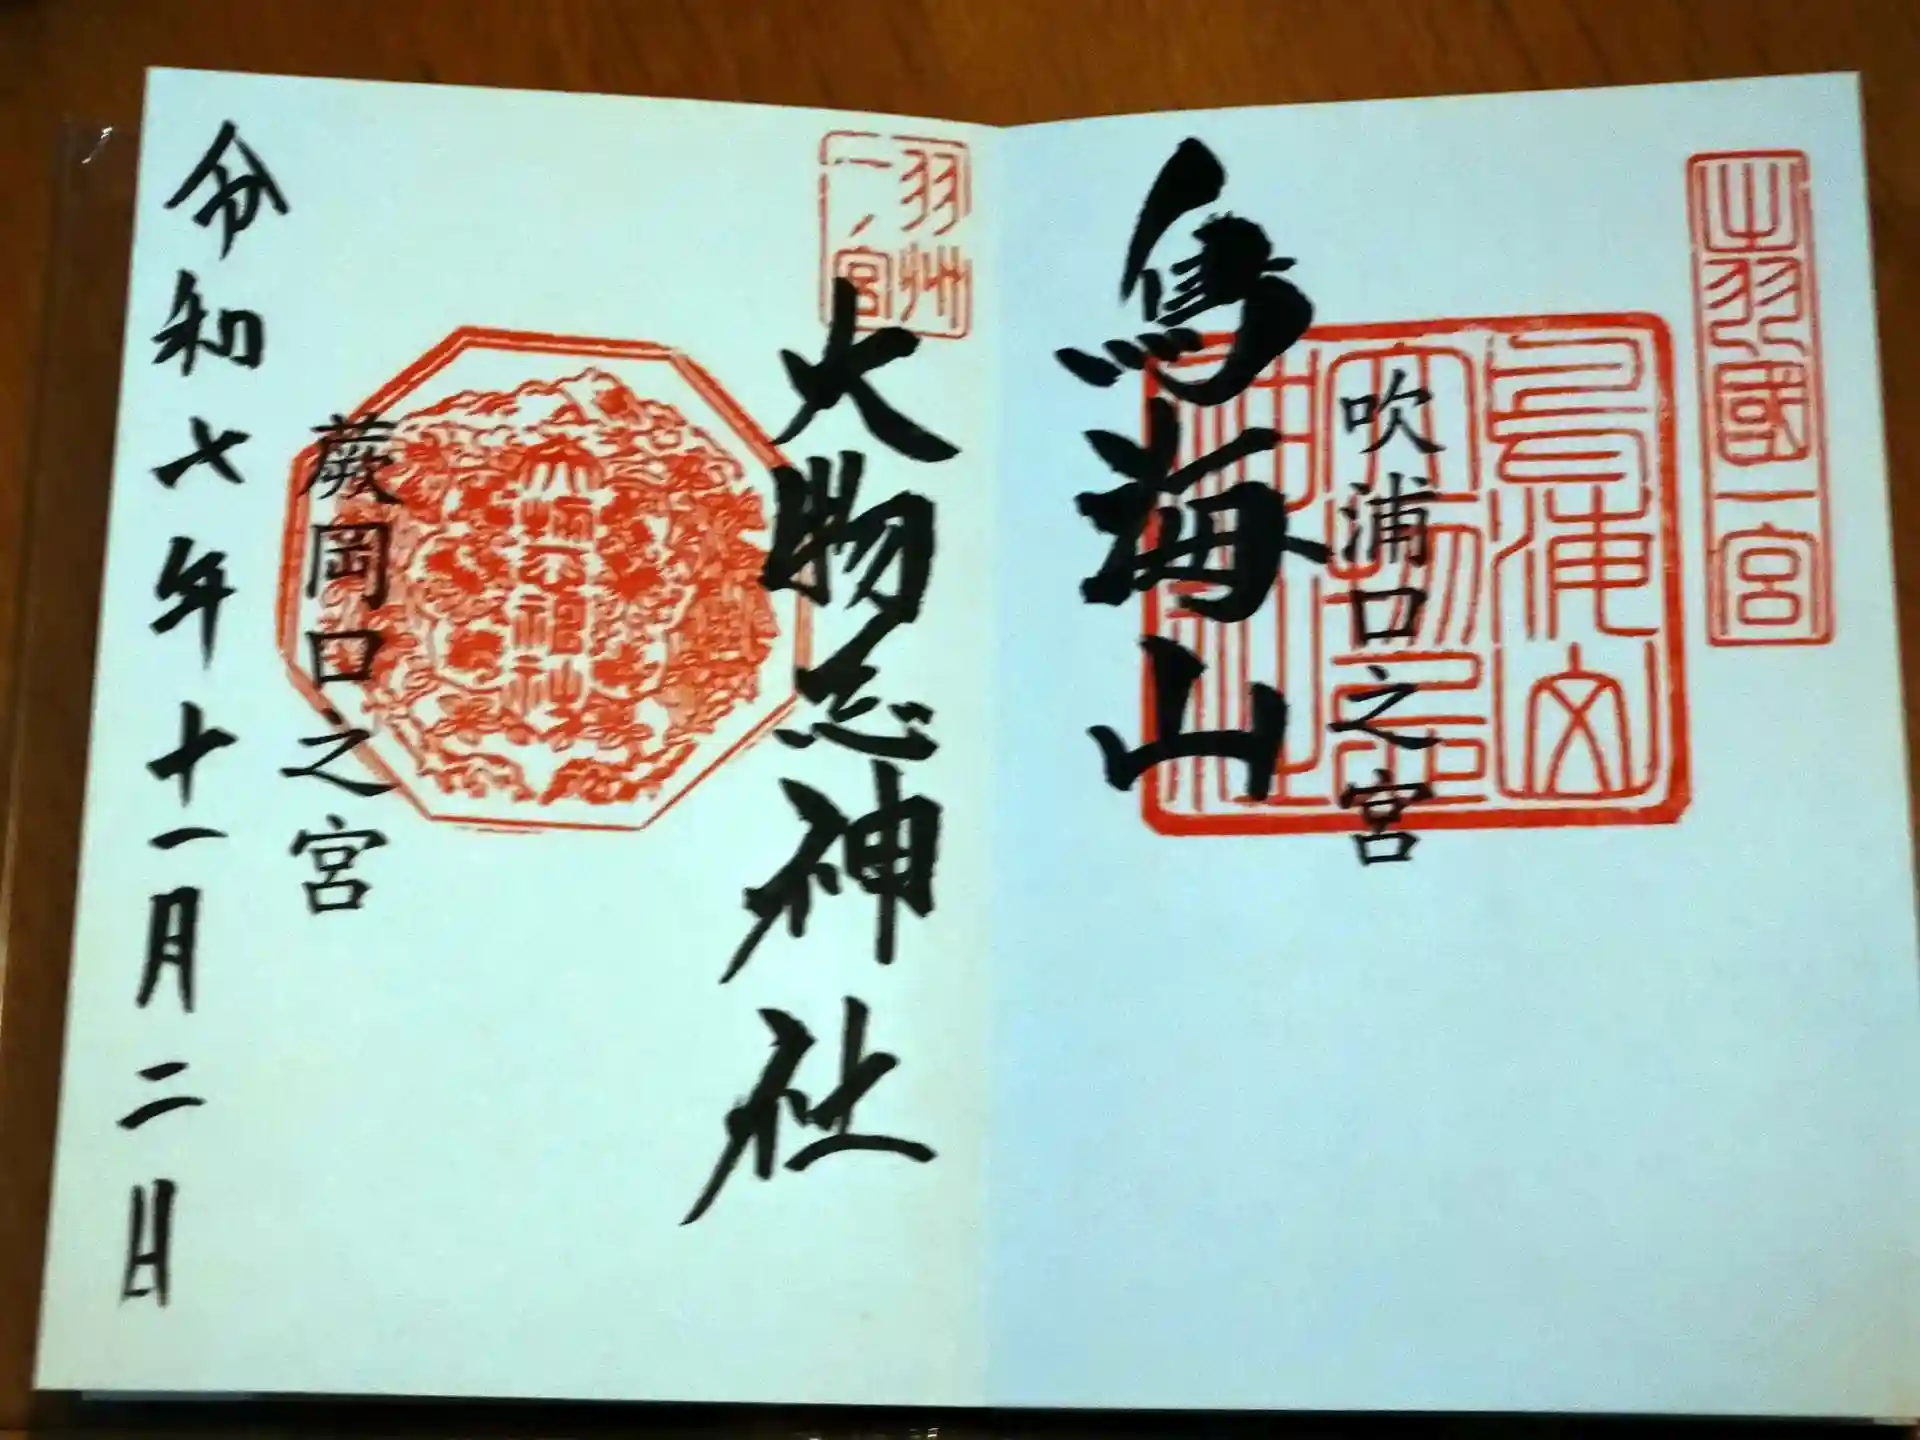 出羽國一宮
吹浦口之宮
鳥海山
羽州
一ノ宮
大物忌神社
蕨岡口之宮
令和七年十一月二日